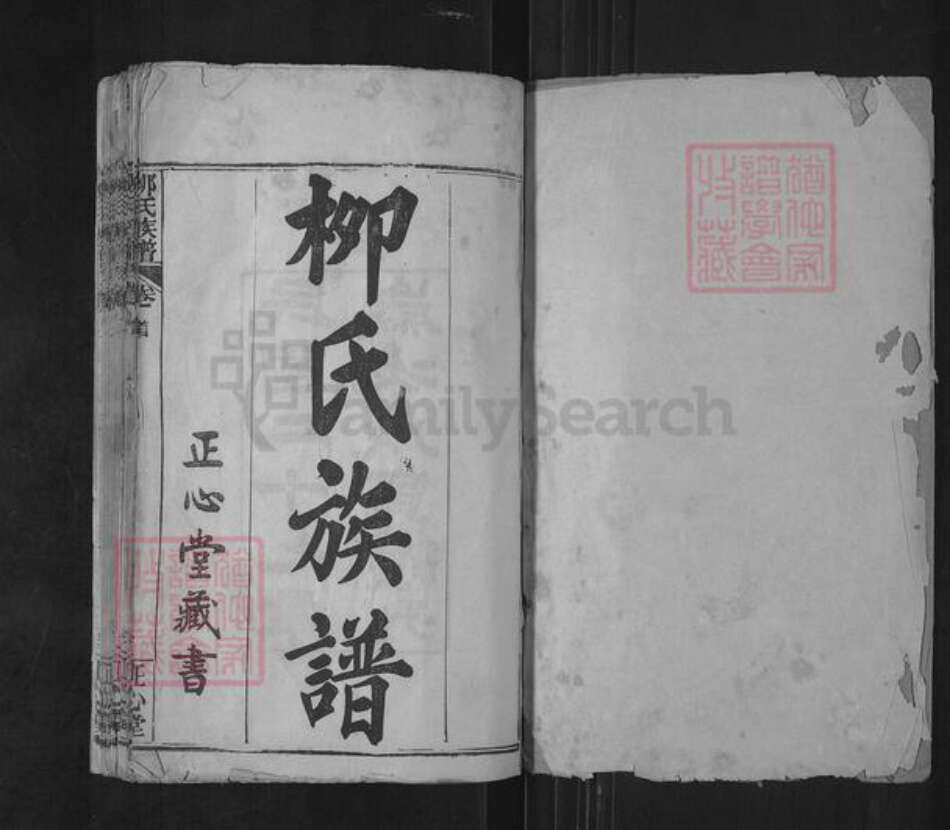 柳氏族譜
正心堂藏書
柳氏族譜 卷首
正心堂
譜學會
收藏
FamilySearch